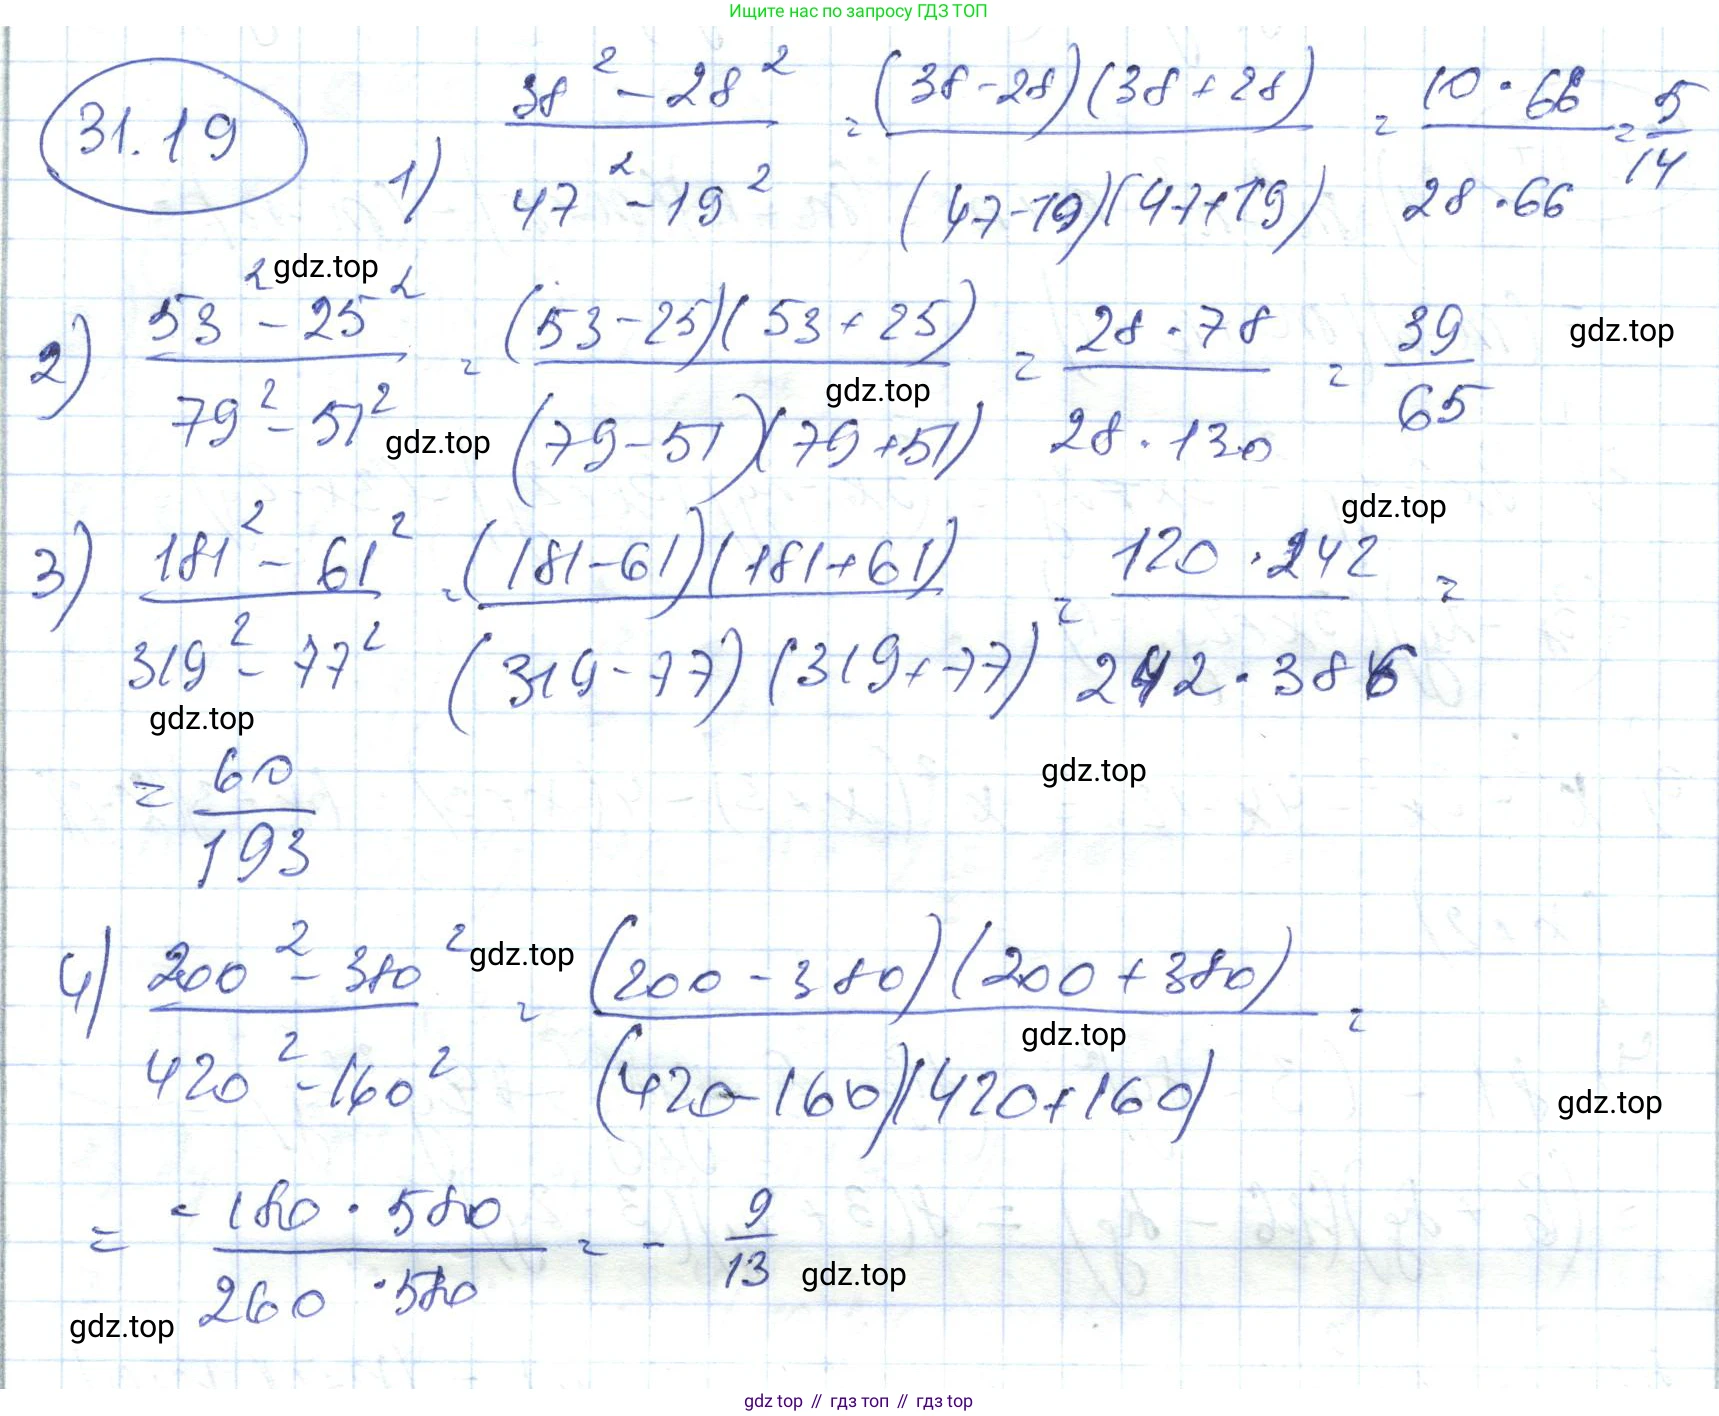 Ищите нас по запросу ГДЗ ТОП
31.19
1) (38² - 28²)/(47² - 19²) = ((38-28)(38+28))/((47-19)(47+19)) = (10·66)/(28·66) = 5/14
gdz.top
2) (53² - 25²)/(79² - 51²) = ((53-25)(53+25))/((79-51)(79+51)) = (28·78)/(28·130) = 39/65
gdz.top
gdz.top
gdz.top
gdz.top
3) (181² - 61²)/(319² - 77²) = ((181-61)(181+61))/((319-77)(319+77)) = (120·242)/(242·386) =
gdz.top
= 60/193
gdz.top
4) (200² - 380²)/(420² - 160²) = ((200-380)(200+380))/((420-160)(420+160)) =
gdz.top
gdz.top
gdz.top
= (-180·580)/(260·580) = - 9/13
gdz.top
gdz.top
gdz top // гдз топ // гдз top